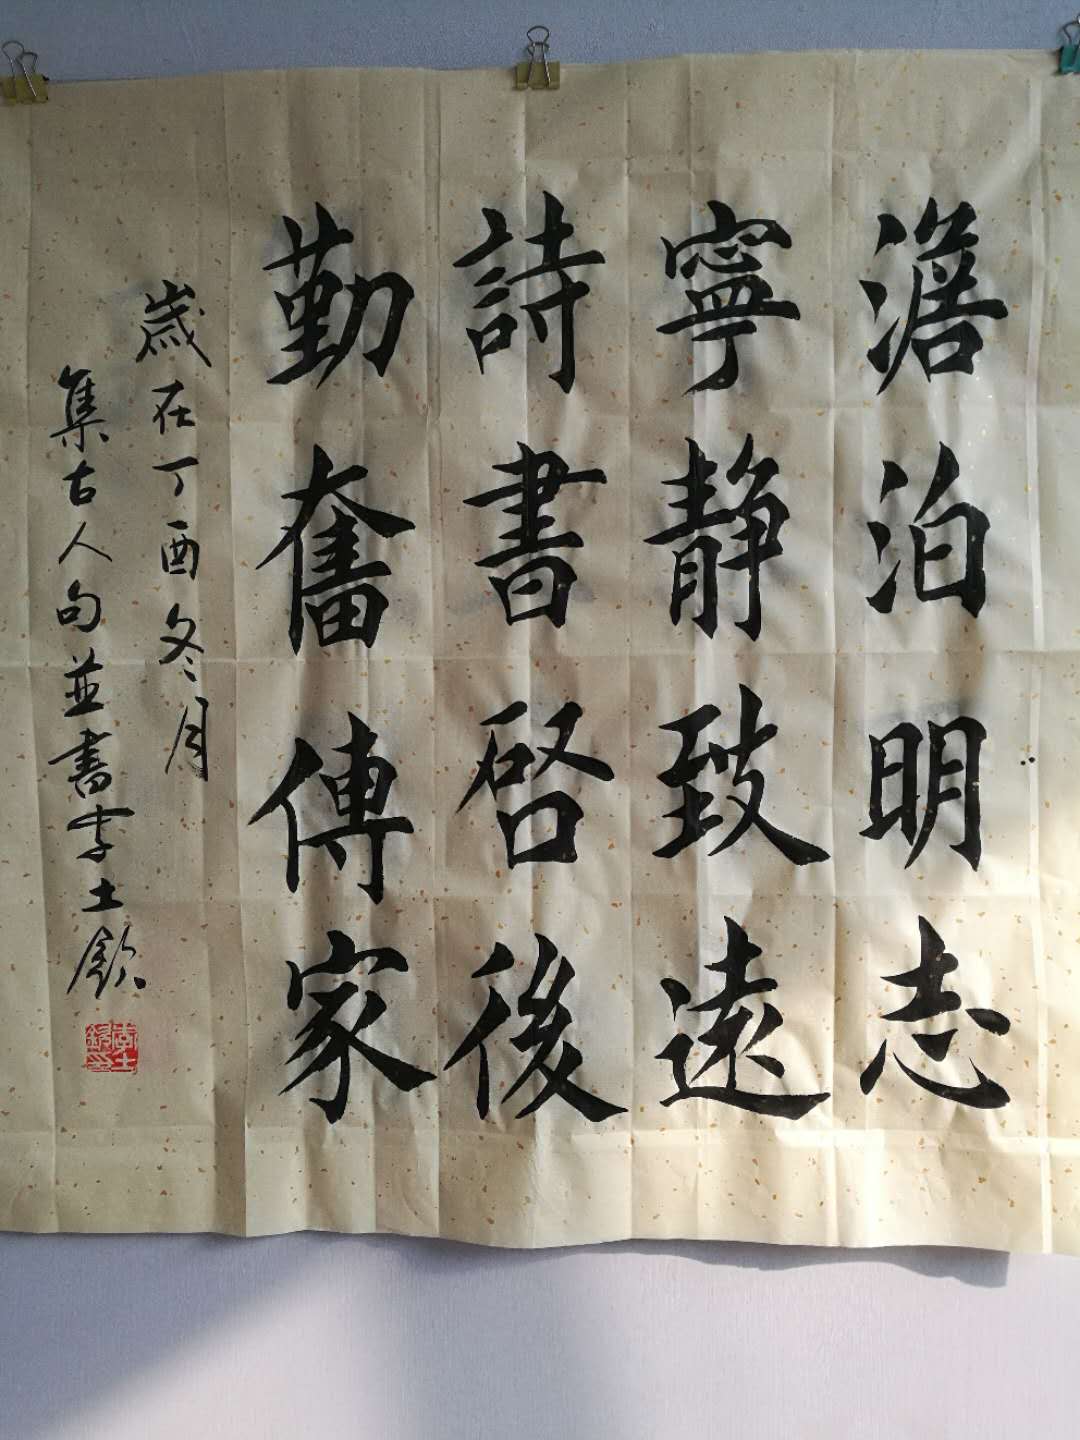 澹泊明志
寧静致遠
詩書啓後
勤奮傳家
歲在丁酉冬月
集古人句並書李士欽